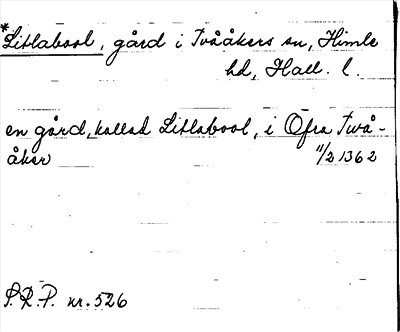 *Litlabool, gård i Tvååkers sn, Himle
hd, Hall. l.
en gård, kallad Litlabool, i Öfra Twå-
åker 11/2 1362
S.R.P. nr. 526